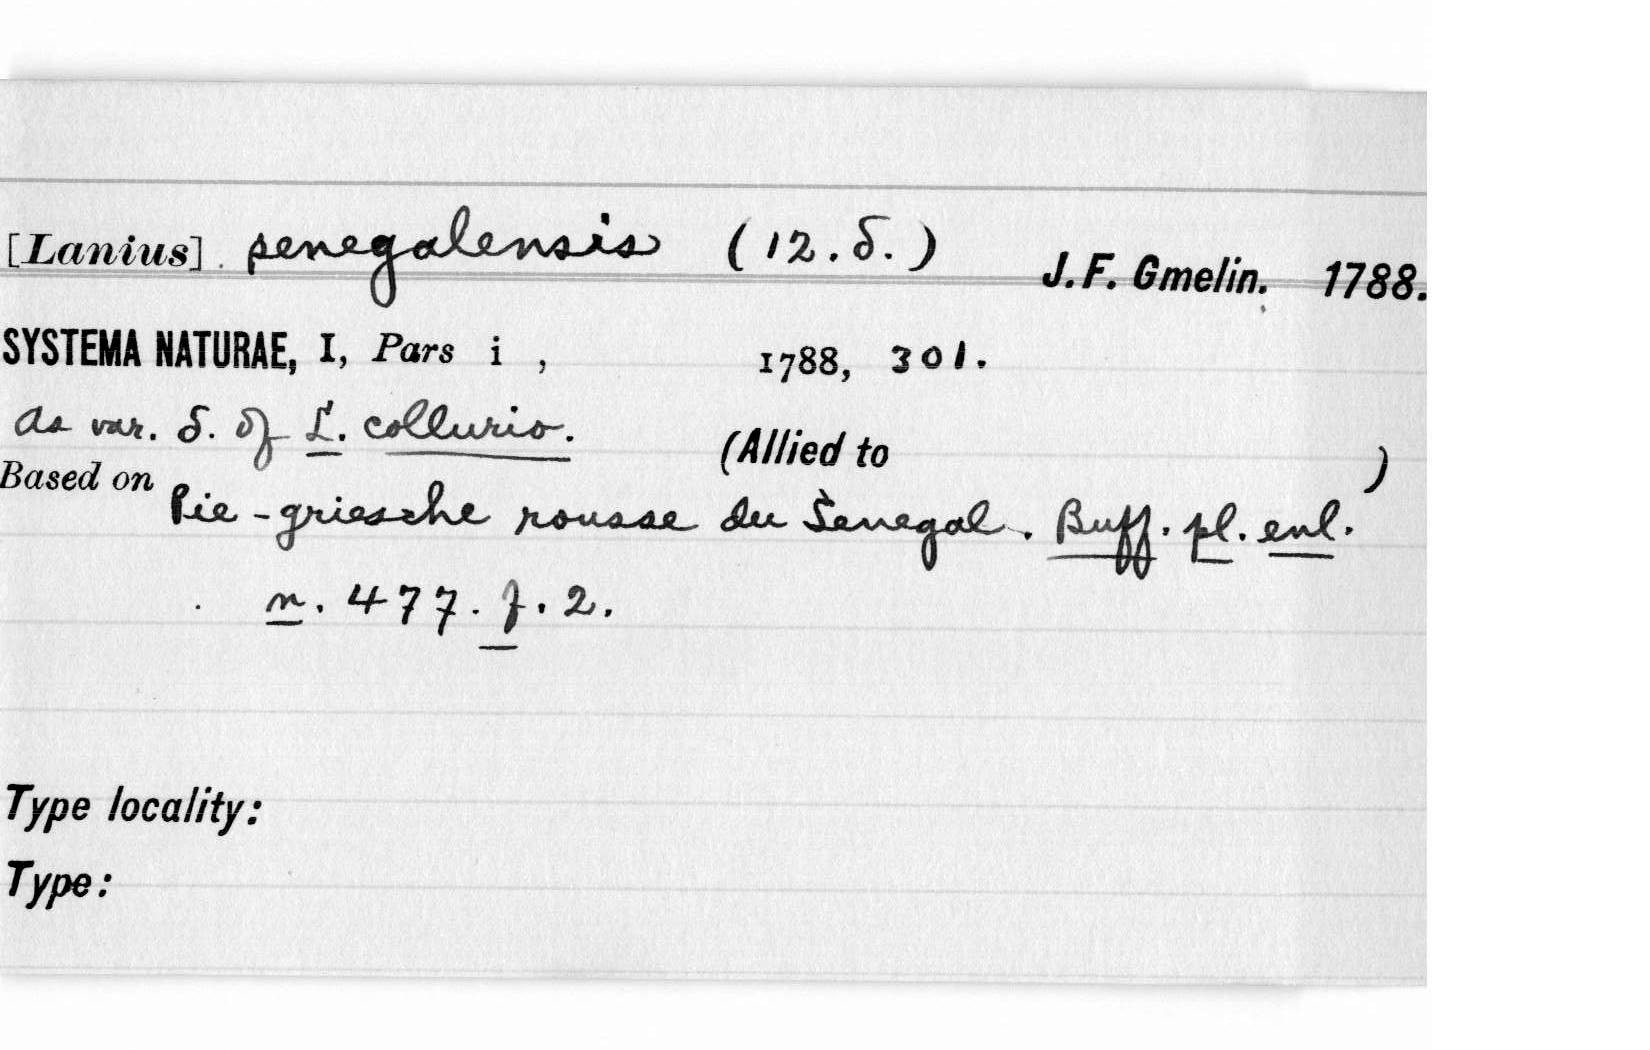 [Lanius] senegalensis (12.δ.) J. F. Gmelin. 1788.
SYSTEMA NATURAE, I, Pars i , 1788, 301.
As var. δ. of L. collurio. (Allied to )
Based on Pie-griesche rousse du Senegal. Buff. pl. enl.
n. 477. f. 2.
Type locality:
Type: